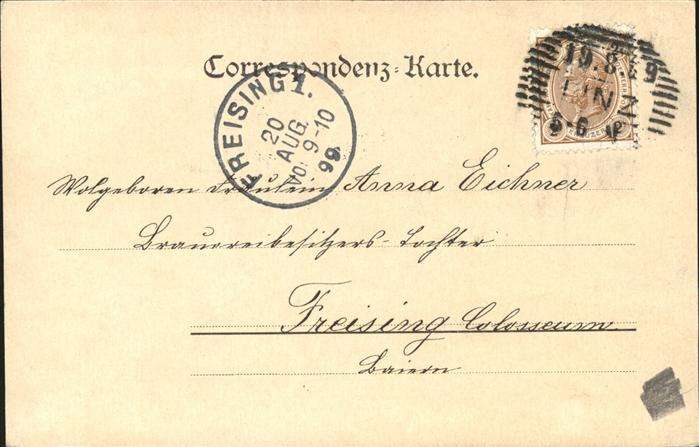 Correspondenz-Karte.
19.8.99
LINZ
5-6
FREISING 1.
20
AUG.
VO. 9-10
99.
Wolgeboren Fräulein Anna Eichner
Brauereibesitzers-Tochter
Freising Colosseum
Baiern